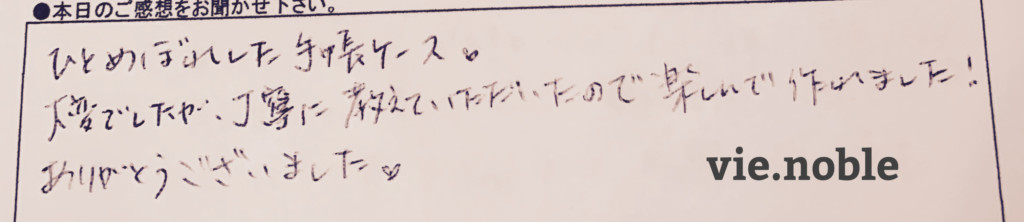 ●本日のご感想をお聞かせ下さい。
ひとめぼれした手帳ケース♡
大変でしたが、丁寧に教えていただいたので楽しんで作れました！
ありがとうございました♡
vie.noble